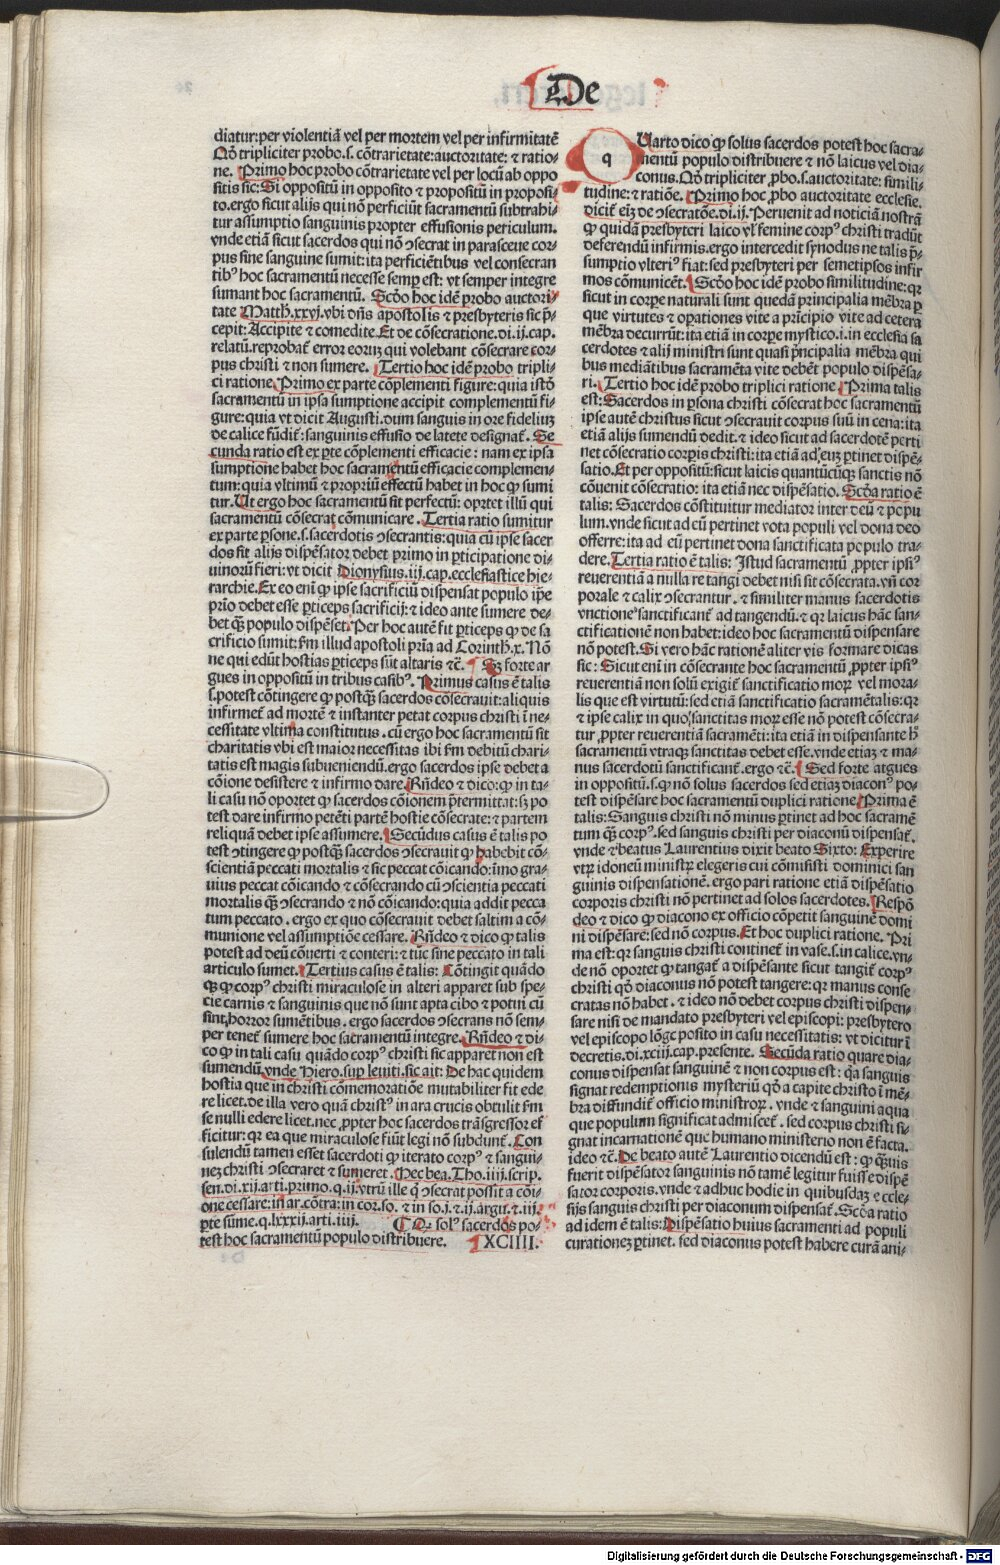 De
diatur: per violentiã vel per mortem vel per infirmitatē
Qđ tripliciter probo.s. cõtrarietate: auctoritate: ⁊ ratio-
ne. Primo hoc probo cõtrarietate vel per locũ ab oppo
sitis sic: Si oppositũ in opposito ⁊ propositũ in proposi-
to. ergo sicut alijs qui nõ perficiũt sacramentũ subtrahi-
tur assumptio sanguinis propter effusionis periculum.
vnde etiã sicut sacerdos qui nõ ꝯsecrat in parasceue cor-
pus sine sanguine sumit: ita perficiẽtibus vel consecran
tibꝰ hoc sacramentũ necesse semp est: vt semper integre
sumant hoc sacramentũ. Scđo hoc idẽ probo auctori-
tate Matth.xxvj. vbi dñs apostolis ⁊ presbyteris sic p̃-
cepit: Accipite ⁊ comedite. Et de cõsecratione.di.ij.cap.
relatũ. reprobat̃ error eoruꝫ qui volebant cõsecrare cor-
pus christi ⁊ non sumere. Tertio hoc idẽ probo tripli-
ci ratione. Primo ex parte cõplementi figure: quia istđ
sacramentũ in ipsa sumptione accipit complementũ fi-
gure: quia vt dicit Augusti. dum sanguis in ore fideliuꝫ
de calice fũdit̃: sanguinis effusio de latete designat̃. Se
cunda ratio est ex ꝑte cõplementi efficacie: nam ex ipsa
sumptione habet hoc sacramentũ efficacie complemen-
tum: quia vltimũ ⁊ propriũ effectũ habet in hoc ꝙ sumi
tur. Ut ergo hoc sacramentũ sit perfectũ: oꝑtet illũ qui
sacramentũ cõsecrat cõmunicare. Tertia ratio sumitur
ex parte ꝑsone.s. sacerdotis ꝯsecrantis: quia cũ ipse sacer
dos sit alijs dispẽsator debet primo in ꝑticipatione di-
uinorũ fieri: vt dicit Dionysius.iij.cap. ecclesiastice hie-
rarchie. Ex eo eni̇ ꝙ ipse sacrificiũ dispensat populo ip̃e
prĩo debet esse ꝑticeps sacrificij: ⁊ ideo ante sumere de-
bet q̃ꝫ populo dispẽset. Per hoc autẽ fit ꝑticeps ꝙ de sa
crificio sumit: ẜm illud apostoli prĩa ad Corinth.x. Nõ
ne qui edũt hostias ꝑticeps sũt altaris ⁊c̃. Sꝫ forte ar
gues in oppositũ in tribus casibꝰ. Primus casus ẽ talis
.s. potest cõtingere ꝙ postq̃ꝫ sacerdos cõsecrauit: aliquis
infirmet̃ ad mortẽ ⁊ instanter petat corpus christi ĩ ne-
cessitate vltima constitutus. cũ ergo hoc sacramentũ sit
charitatis vbi est maior necessitas ibi ẜm debitũ chari-
tatis est magis subueniendũ. ergo sacerdos ipse debet a
cõione desistere ⁊ infirmo dare. Rñdeo ⁊ dico: ꝙ in ta-
li casu nõ oportet ꝙ sacerdos cõionem p̃termittat: sꝫ po
test dare infirmo petẽti partẽ hostie cõsecrate: ⁊ partem
reliquã debet ipse assumere. Secũdus casus ẽ talis po
test ꝯtingere ꝙ postq̃ꝫ sacerdos ꝯsecrauit ꝙ habebit cõ-
scientiã peccati mortalis ⁊ sic peccat cõicando: imo gra-
uius peccat cõicando ⁊ cõsecrando cũ ꝯscientia peccati
mortalis q̃ꝫ ꝯsecrando ⁊ nõ cõicando: quia addit pecca
tum peccato. ergo ex quo cõsecrauit debet saltim a cõ-
munione vel assumptiõe cessare. Rñdeo ⁊ dico ꝙ talis
potest ad deũ cõuerti ⁊ conteri: ⁊ tũc sine peccato in tali
articulo sumet. Tertius casus ẽ talis: Cõtingit quãdo
q̃ꝫ ꝙ corpꝰ christi miraculose in alteri apparet sub spe-
cie carnis ⁊ sanguinis que nõ sunt apta cibo ⁊ potui cũ
sint horror sumẽtibus. ergo sacerdos ꝯsecrans nõ sem-
per tenet̃ sumere hoc sacramentũ integre. Rñdeo ⁊ di-
co ꝙ in tali casu quãdo corpꝰ christi sic apparet non est
sumendũ. vnde Hiero. suꝑ leuiti. sic ait: De hac quidem
hostia que in christi cõmemoratiõe mutabiliter fit ede
re licet. de illa vero quã christꝰ in ara crucis obtulit ẜm
se nulli edere licet. nec ꝓpter hoc sacerdos trãsgressor ef
ficitur: qꝛ ea que miraculose fiũt legi nõ subdunt̃. Con
sulendũ tamen esset sacerdoti ꝙ iterato corpꝰ ⁊ sangui-
neꝫ christi ꝯsecraret ⁊ sumeret. Hec bea.Tho.iiij.scrip.
sen.di.xij.arti.primo.q.ij. vtrũ ille q̃ ꝯsecrat possit a cõi-
one cessare: in ar.cõtra: in cor.so. ⁊ in so.j.⁊.ij.argu.⁊.iij.
ꝑte sũme.q.lxxxij.arti.iiij. ¶ Q̃ solꝰ sacerdos po-
test hoc sacramentũ populo distribuere. XCIIII.
QUarto dico ꝙ solus sacerdos potest hoc sacra-
mentũ populo distribuere ⁊ nõ laicus vel dia-
conus. Qđ tripliciter ꝓbo.s. auctoritate: simili-
tudine: ⁊ ratiõe. Primo hoc ꝓbo auctoritate ecclesie.
dicit̃ eiꝫ de ꝯsecratõe.di.ij. Peruenit ad noticiã nostrã
ꝙ quidã presbyteri laico vł femine corpꝰ christi tradũt
deferendũ infirmis. ergo intercedit synodus ne talis p̃-
sumptio vlteriꝰ fiat: sed presbyteri per semetipsos infir
mos cõmunicẽt. Scđo hoc idẽ probo similitudine: qꝛ
sicut in corꝑe naturali sunt quedã principalia mẽbra ꝑ
que virtutes ⁊ oꝑationes vite a prĩcipio vite ad cetera
mẽbra decurrũt: ita etiã in corꝑe mystico.i. in ecclesia sa
cerdotes ⁊ alij ministri sunt quasi p̃ncipalia mẽbra qui
bus mediãtibus sacramẽta vite debẽt populo dispẽsa-
ri. Tertio hoc idẽ probo triplici ratione. Prima talis
est: Sacerdos in ꝑsona christi cõsecrat hoc sacramentũ
ipse autẽ christus sicut ꝯsecrauit corpus suũ in cena: ita
etiã alijs sumendũ dedit. ⁊ ideo sicut ad sacerdotẽ perti
net cõsecratio corꝑis christi: ita etiã ad euꝫ ꝑtinet dispẽ-
satio. Et per oppositũ: sicut laicis quantũcũqꝫ sanctis nõ
cõuenit cõsecratio: ita etiã nec dispẽsatio. Scđa ratio ẽ
talis: Sacerdos cõstituitur mediator inter deũ ⁊ popu
lum. vnde sicut ad eũ pertinet vota populi vel dona deo
offerre: ita ad eũ pertinet dona sanctificata populo tra-
dere. Tertia ratio ẽ talis: Istud sacramentũ ꝓpter ipsiꝰ
reuerentiã a nulla re tangi debet nisi sit cõsecrata. vñ cor
porale ⁊ calix ꝯsecrantur. ⁊ similiter manus sacerdotis
vnctione sanctificant̃ ad tangendũ. ⁊ qꝛ laicus hãc san-
ctificationẽ non habet: ideo hoc sacramentũ dispensare
nõ potest. Si vero hãc rationẽ aliter vis formare dicas
sic: Sicut eni̇ in cõsecrante hoc sacramentũ ꝓpter ipsiꝰ
reuerentiã non solũ exigit̃ sanctificatio moꝝ vel mora-
lis que est virtutũ: sed etiã sanctificatio sacramẽtalis: qꝛ
⁊ ipse calix in quo sanctitas moꝝ esse nõ potest cõsecra-
tur ꝓpter reuerentiã sacramẽti: ita etiã in dispensante ħ
sacramentũ vtraqꝫ sanctitas debet esse. vnde etiaꝫ ⁊ ma-
nus sacerdotũ sanctificant̃. ergo ⁊c̃. Sed forte argues
in oppositũ.s. ꝙ nõ solus sacerdos sed etiaꝫ diaconꝰ po-
test dispẽsare hoc sacramentũ duplici ratione. Prima ẽ
talis: Sanguis christi nõ minus ꝑtinet ad hoc sacramẽ
tum q̃ꝫ corpꝰ. sed sanguis christi per diaconũ dispensat̃.
vnde ⁊ beatus Laurentius dixit beato Sixto: Experire
vtꝝ idoneũ ministꝝ elegeris cui cõmisisti dominici san
guinis dispensationẽ. ergo pari ratione etiã dispẽsatio
corporis christi nõ pertinet ad solos sacerdotes. Respõ
deo ⁊ dico ꝙ diacono ex officio cõpetit sanguinẽ domi
ni dispẽsare: sed nõ corpus. Et hoc duplici ratione. Pri
ma est: qꝛ sanguis christi continet̃ in vase.s. in calice. vn-
de nõ oportet ꝙ tangat̃ a dispẽsante sicut tangit̃ corpꝰ
christi qđ diaconus nõ potest tangere: qꝛ manus conse
cratas nõ habet. ⁊ ideo nõ debet corpus christi dispen-
sare nisi de mandato presbyteri vel episcopi: presbytero
vel episcopo lõge posito in casu necessitatis: vt dicitur ĩ
decretis.di.xciij.cap.presente. Secũda ratio quare dia-
conus dispensat sanguinẽ ⁊ non corpus est: q̃a sanguis
signat redemptionis mysteriũ qđ a capite christo ĩ mẽ-
bra diffundit̃ officio ministroꝝ. vnde ⁊ sanguini aqua
que populum significat admiscet̃. sed corpus christi si-
gnat incarnationẽ que humano ministerio non ẽ facta.
ideo ⁊c̃. De beato autẽ Laurentio dicendũ est: ꝙ q̃uis
fuerit dispẽsator sanguinis nõ tamẽ legitur fuisse dispẽ
sator corporis. vnde ⁊ adhuc hodie in quibusdaꝫ eccle-
sijs sanguis christi per diaconum dispensat̃. Scđa ratio
ad idem ẽ talis: Dispẽsatio huius sacramenti ad populi
curationeꝫ ꝑtinet. sed diaconus potest habere curã ani-
Digitalisierung gefördert durch die Deutsche Forschungsgemeinschaft - DFG